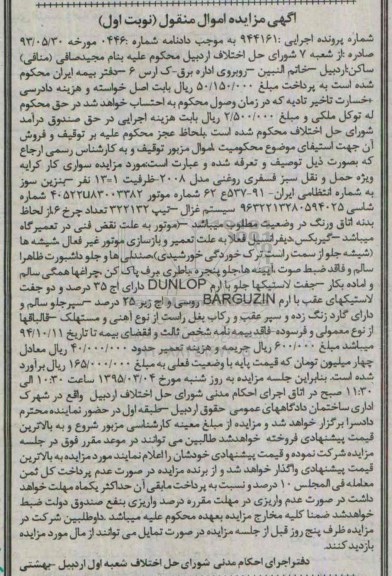 آگهی مزایده اموال منقول (نوبت اول)
شماره پرونده اجرایی :۹۴۴۱۶۱ به موجب دادنامه شماره :۰۴۴۶ مورخه ۹۳/۰۵/۳۰
صادره :از شعبه ۷ شورای حل اختلاف اردبیل محکوم علیه بنام مجیدصافی (منافی)
ساکن:اردبیل –خاتم النبیین –روبروی اداره برق-ک ارس ۶ –دفتر بیمه ایران محکوم
شده است به پرداخت مبلغ ۵۰/۱۵۰/۰۰۰ ریال بابت اصل خواسته و هزینه دادرسی
+خسارت تاخیر تادیه که در زمان وصول محکوم به احتساب خواهد شد در حق محکوم
له توکل ملکی و مبلغ ۲/۵۰۰/۰۰۰ ریال بابت هزینه اجرایی در حق صندوق درآمد
شورای حل اختلاف محکوم شده است .بلحاظ عجز محکوم علیه بر توقیف و فروش
آن جهت استیفای موضوع محکومیت .اموال مزبور توقیف و به کارشناس رسمی ارجاع
که بصورت ذیل توصیف و تعرفه شده و عبارت است:مورد مزایده سواری کار کرایه
ویژه حمل و نقل سبز فسفری روغنی مدل ۲۰۰۸-ظرفیت ۱-۱۳ نفر –بنزین سوز
به شماره انتظامی ایران- ۹۱-۵۳۷ع ۶۲ شماره موتور ۴۰۵۲۲U۸۳۰۰۳۳۸۲ شماره
شاسی ۹۶۳۲۲۱۳۳۸۰۵۹۴۰۲۵ سیستم غزال –تیپ ۳۲۲۱۳۲ تعداد چرخ ۶ از لحاظ
بدنه اتاق ورنگ در وضعیت مطلوب میباشد –(موتور به علت نقض فنی در تعمیرگاه
میباشد –گیربکس.دیفرانسیل فعلا به علت تعمیر و بازسازی موتور غیر فعال .شیشه ها
(شیشه جلو از سمت راست ترک خوردگی خورشیدی)صندلی ها و جلو داشبورت ظاهرا
سالم و فاقد ضبط صوت .آیینه ها.جلو پنجره.باطری .برف پاک کن .چراغها همگی سالم
و اماده بکار –جفت لاستیکها جلو با ارم DUNLOP دارای اج ۳۵ درصد و دو جفت
لاستیکهای عقب با ارم BARGUZIN روسی و اج زیر ۲۵ درصد –سپرجلو سالم و
دارای گارد زنگ زده و سپر عقب و رکاب بغل راست از نوع آهنی و مستهلک –قالپاقها
از نوع معمولی و فرسوده-فاقد بیمه نامه شخص ثالث و انقضای بیمه تا تاریخ ۹۴/۱۰/۱۱
میباشد مبلغ ۶۰۰/۰۰۰ ریال جریمه و هزینه تعمیر حدود ۴۰/۰۰۰/۰۰۰ ریال معادل
چهار میلیون تومان که قیمت پایه با وضعیت فعلی به مبلغ ۱۶۵/۰۰۰/۰۰۰ ریال برآورد
شده است. بنابراین جلسه مزایده به روز شنبه مورخ ۱۳۹۵/۰۳/۰۴ ساعت ۱۰:۳۰ الی
۱۱:۳۰ صبح در اتاق اجرای احکام مدنی شورای حل اختلاف اردبیل واقع در شهرک
اداری ساختمان دادگاههای عمومی حقوق اردبیل –طبقه اول در حضور نماینده محترم
دادسرا برگزار خواهد شد و مزایده از مبلغ معینه کارشناسی مزبور شروع و به بالاترین
قیمت پیشنهادی فروخته خواهدشد طالبین می توانند در موعد مقرر فوق در جلسه
مزایده شرکت نموده و قیمت پیشنهادی خودشان را اعلام نمایند مورد مزایده به بالاترین
قیمت پیشنهادی واگذار خواهد شد و از برنده مزایده در صورت عدم پرداخت کل ثمن
معامله فی المجلس ۱۰ درصد و نسبت به پرداخت مابقی آن حداکثر یکماه مهلت خواهد
داشت در صورت عدم واریزی در مهلت مقرره درصد واریزی بنفع صندوق دولت ضبط
خواهدشد ضمنا کلیه مخارج مزایده بعهده محکوم علیه میباشد .داوطلبین شرکت در
مزایده ظرف پنج روز قبل از جلسه مزایده در صورت تمایل می توانند از مال مورد مزایده
بازدید کنند.
دفتر اجرای احکام مدنی شورای حل اختلاف شعبه اول اردبیل –بهشتی